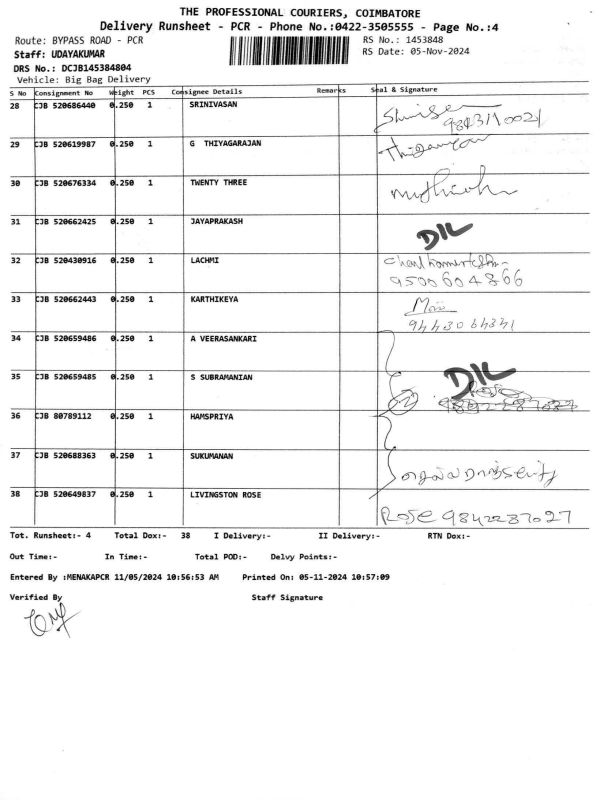 THE PROFESSIONAL COURIERS, COIMBATORE
Delivery Runsheet - PCR - Phone No.:0422-3505555 - Page No.:4
Route: BYPASS ROAD - PCR RS No.: 1453848
Staff: UDAYAKUMAR RS Date: 05-Nov-2024
DRS No.: DCJB145384804
Vehicle: Big Bag Delivery
S No Consignment No Weight PCS Consignee Details Remarks Seal & Signature
28 CJB 520686440 0.250 1 SRINIVASAN
29 CJB 520619987 0.250 1 G THIYAGARAJAN
30 CJB 520676334 0.250 1 TWENTY THREE
31 CJB 520662425 0.250 1 JAYAPRAKASH DIL
32 CJB 520430916 0.250 1 LACHMI
9500604866
33 CJB 520662443 0.250 1 KARTHIKEYA
34 CJB 520659486 0.250 1 A VEERASANKARI
35 CJB 520659485 0.250 1 S SUBRAMANIAN DIL
36 CJB 80789112 0.250 1 HAMSPRIYA
37 CJB 520688363 0.250 1 SUKUMANAN
38 CJB 520649837 0.250 1 LIVINGSTON ROSE
Rose 9842287027
Tot. Runsheet:- 4 Total Dox:- 38 I Delivery:- II Delivery:- RTN Dox:-
Out Time:- In Time:- Total POD:- Delvy Points:-
Entered By :MENAKAPCR 11/05/2024 10:56:53 AM Printed On: 05-11-2024 10:57:09
Verified By Staff Signature